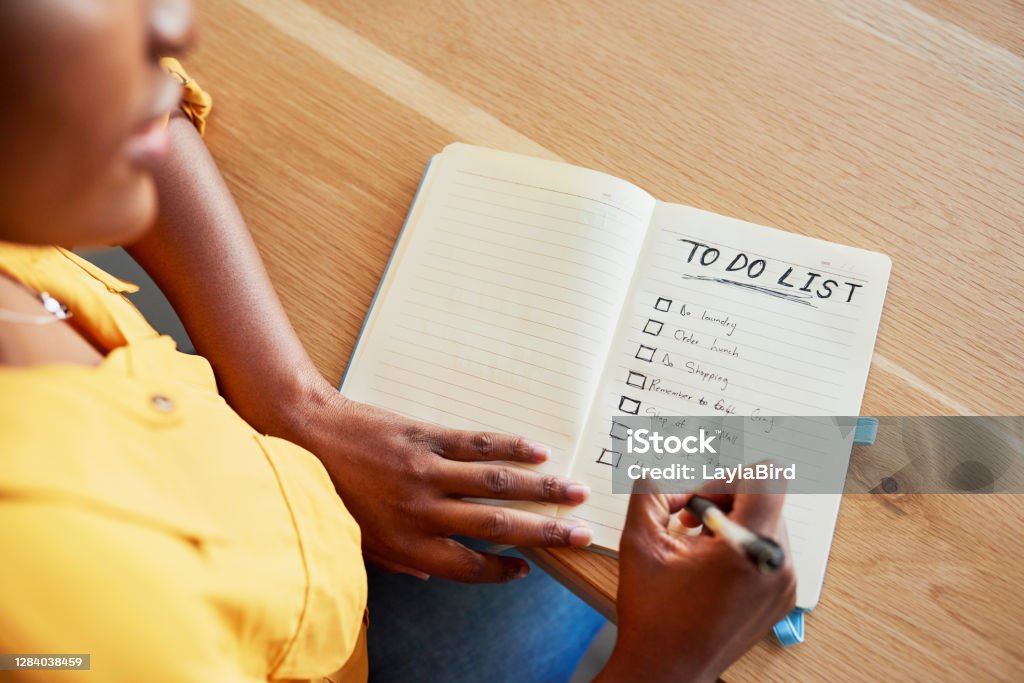 TO DO LIST
Do laundry
Order lunch
Do Shopping
Remember to
Stop at
iStock™
Credit: LaylaBird
1284038459